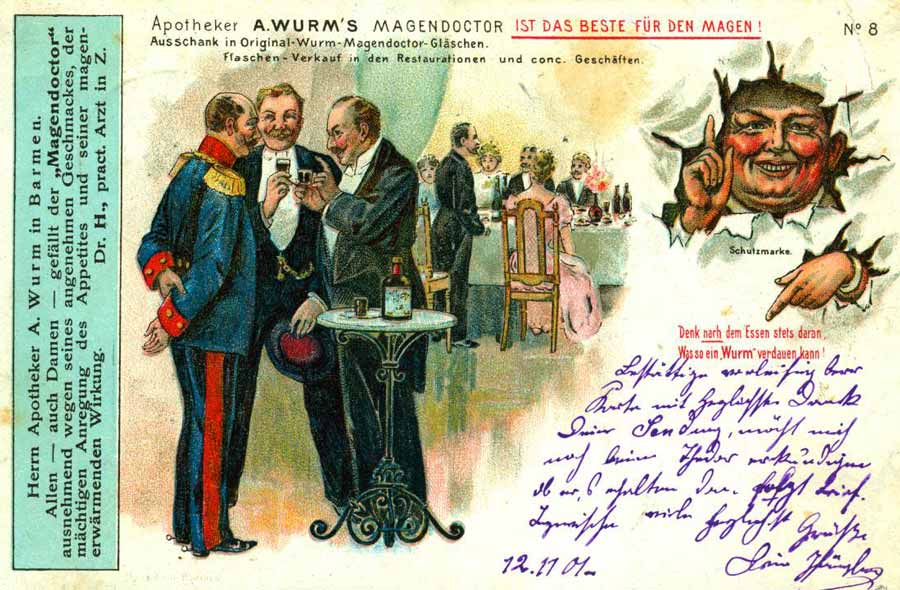 Apotheker A. WURM'S MAGENDOCTOR IST DAS BESTE FÜR DEN MAGEN!
No 8
Ausschank in Original-Wurm-Magendoctor-Gläschen.
Flaschen-Verkauf in den Restaurationen und conc. Geschäften.
Herrn Apotheker A. Wurm in Barmen.
Allen — auch Damen — gefällt der „Magendoctor“
ausnehmend wegen seines angenehmen Geschmackes, der
mächtigen Anregung des Appetites und seiner magen-
erwärmenden Wirkung. Dr. H., pract. Arzt in Z.
Schutzmarke.
Denk nach dem Essen stets daran,
Was so ein „Wurm“ verdauen kann!
Bestättige
Karte mit Dank
Deiner Sendung, möcht mich
noch beim erkundigen
ob er,s erhalten folgt Brief.
viele Grüße
12.11 01